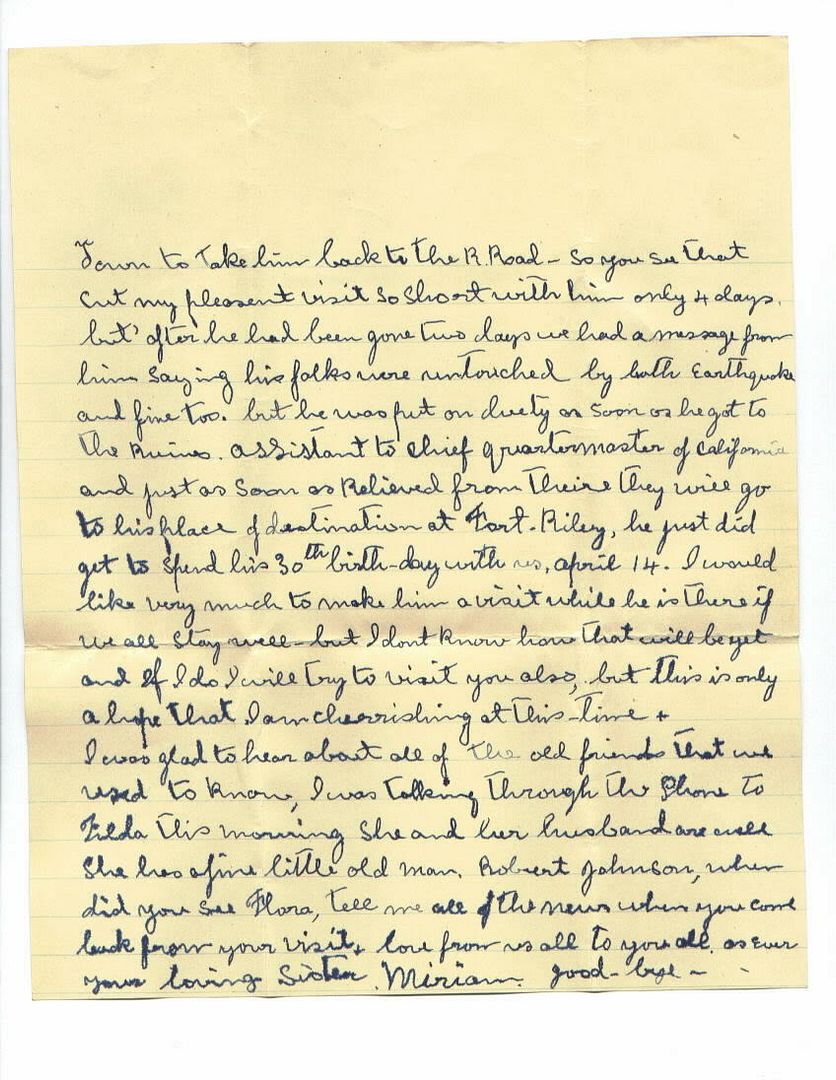 Town to Take him back to the R. Road - so you see that
cut my pleasent visit so short with him only 4 days.
but after he had been gone two days we had a message from
him saying his folks were untouched by both Earthquake
and fine too. but he was put on duety as soon as he got to
the Ruins. assistant to chief quartermaster of California
and just as soon as Relieved from Theire they will go
to his place of destination at Fort-Riley, he just did
get to spend his 30th birth-day with us, april 14. I would
like very much to make him a visit while he is there if
we all stay well - but I dont know how that will be yet
and If I do I will try to visit you also, but this is only
a hope that I am cherrishing at this-time +
I was glad to hear about all of the old friends that we
used to know, I was talking through the Phone to
Tilda this morning she and her husband are well
she has a fine little old man. Robert Johnson, when
did you see Flora, tell me all of the news when you come
back from your visit + love from us all to you all. as Ever
your loving Sister. Miriam. good-bye -